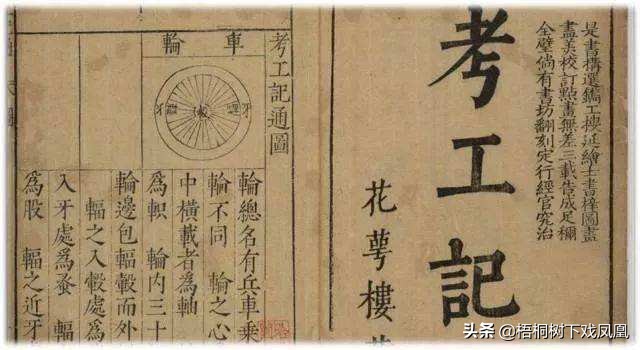 是書搆選鐫工搜延繪士書榟圖畫
盡美校訂點畫無差三載告成足稱
全璧倘有書坊翻刻定行經官究治
考工記
花萼樓
考工記通圖
車輪
牙
牙
輪總名有兵車乗
輪不同 輪之心
中橫載者為軸
為軹 輪内三十
輪邊包輻轂而外
輻之入轂處為
入牙處為蚤 輻
為股 輻之近牙
头条 @梧桐树下戏凤凰